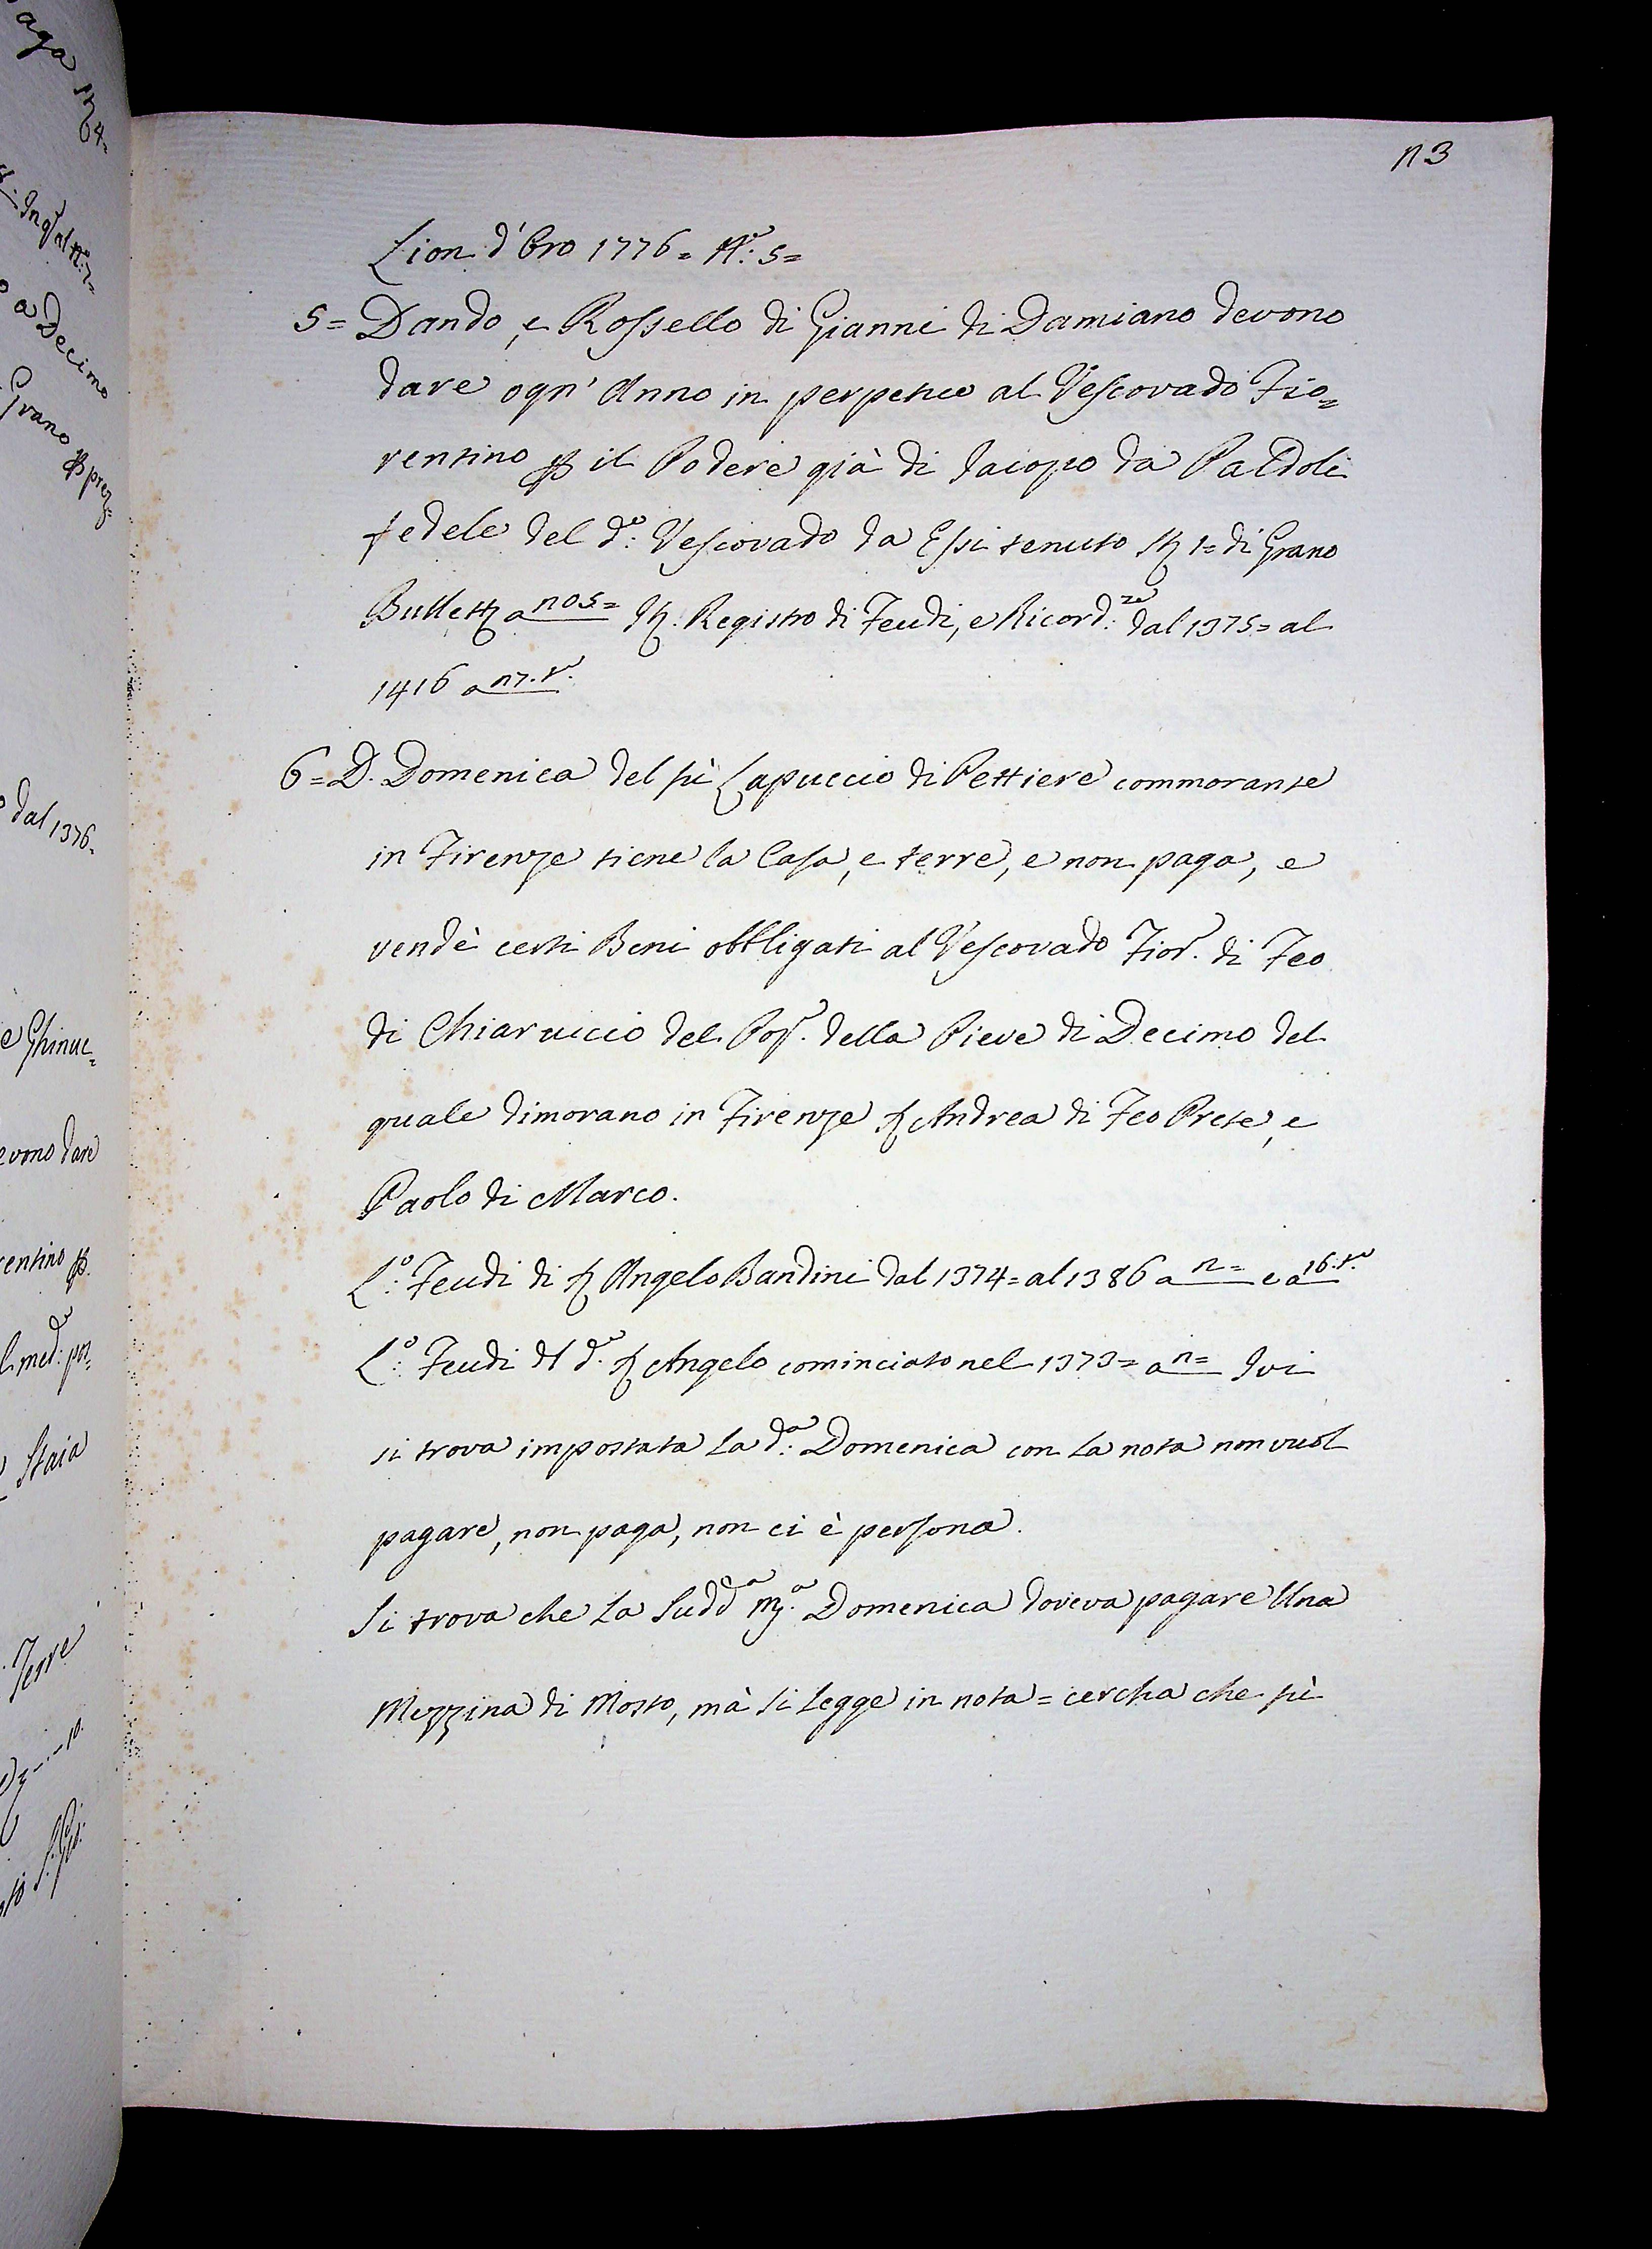 n 3
Lion d'Oro 1776= N.o 5=
5= Dando, e Rossello di Gianni di Damiano devono
dare ogn' Anno in perpetuo al Vescovado Fio=
rentino il Podere già di Iacopo da Paldoli
fedele del d.o Vescovado da Essi tenuto 1= di Grano
Bullett a n 05= Registro di Feudi, e Ricord.ze dal 1375= al
1416 a n 7. t.o
6= D. Domenica del fù Lapuccio di Pettiere commorante
in Firenze tiene la Casa, e terre, e non paga, e
vendè certi Beni obbligati al Vescovado Fior. di Feo
di Chiaruccio del Pop. della Pieve di Decimo del
quale dimorano in Firenze Andrea di Feo Prete, e
Paolo di Marco.
L.o Feudi di Angelo Bandini dal 1374= al 1386 a n= e a 16. t.o
L.o Feudi d d.o Angelo cominciato nel 1373= a n= Ivi
si trova impostata la d.a Domenica con la nota non vuol
pagare, non paga, non ci è persona.
Si trova che la Sudd.a M.a Domenica doveva pagare Una
Mezzina di Mosto, mà si legge in nota= cercha che fù
aga
4=
Ing al N.o 7=
o a Decimo
Grano prez=
o dal 1376.
e Ghinuc=
evono dare
rentino
l med.o po
Staia
Terre
10